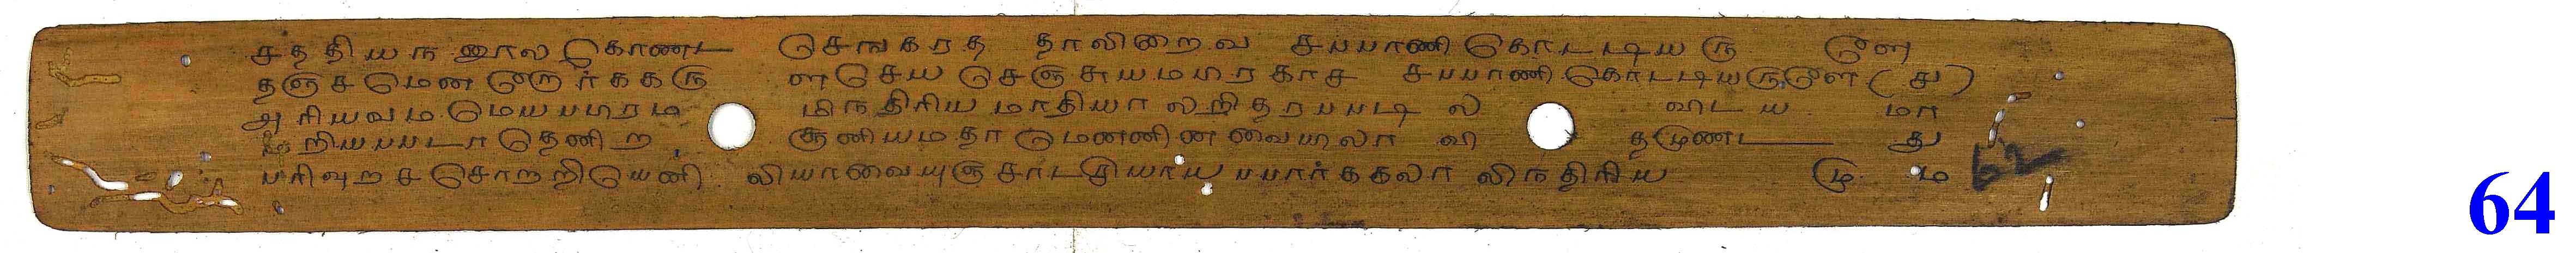 சததியந ஜால கொணட செஙகரத தாலிறைவ சபபாணி கொடடியரு ளெ
தஞசமென றெர்ககரு ளசெய செஞசுயமபரகாச சபபாணி கொடடியருளெ (சு)
அரியவம மெயபபரம மிநதிரிய மாதியா லறிதரபபடி ல விடய மா
றியபபடா தெனிற சூனியமதா மெணணின வையிலா வி தமுணட து
பரிவுறச சொறறியெனி லியாவையுஞ சாடசியாய பபார்ககலா லிநதிரிய மு ம
62
64